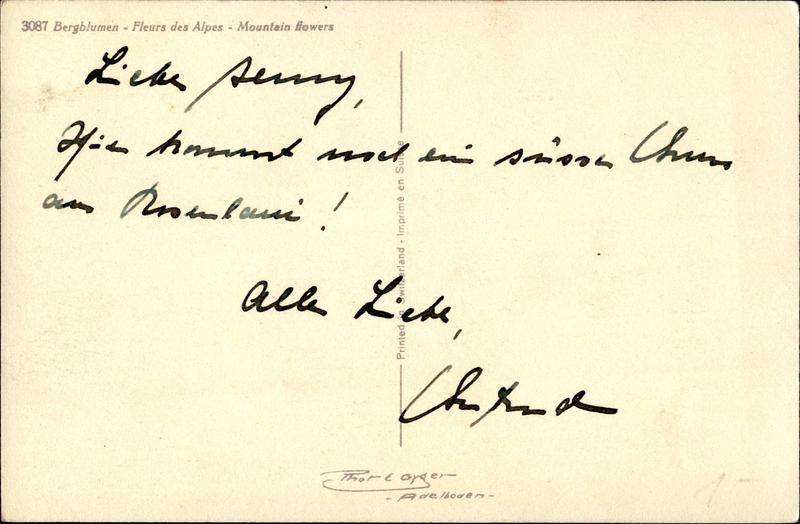 3087 Bergblumen - Fleurs des Alpes - Mountain flowers
Liebe Jenny,
Hier kommt noch ein süsser Gruss
aus Rosenlaui!
Alles Liebe,
Gertrud
Printed in Switzerland - Imprimé en Suisse
Phot E Gyger
- Adelboden -